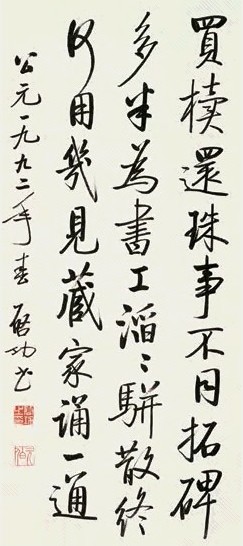 買櫝還珠事不同拓碑
多半為書工滔〻駢散終
何用幾見藏家誦一通
公元一九九二年春 啟功书